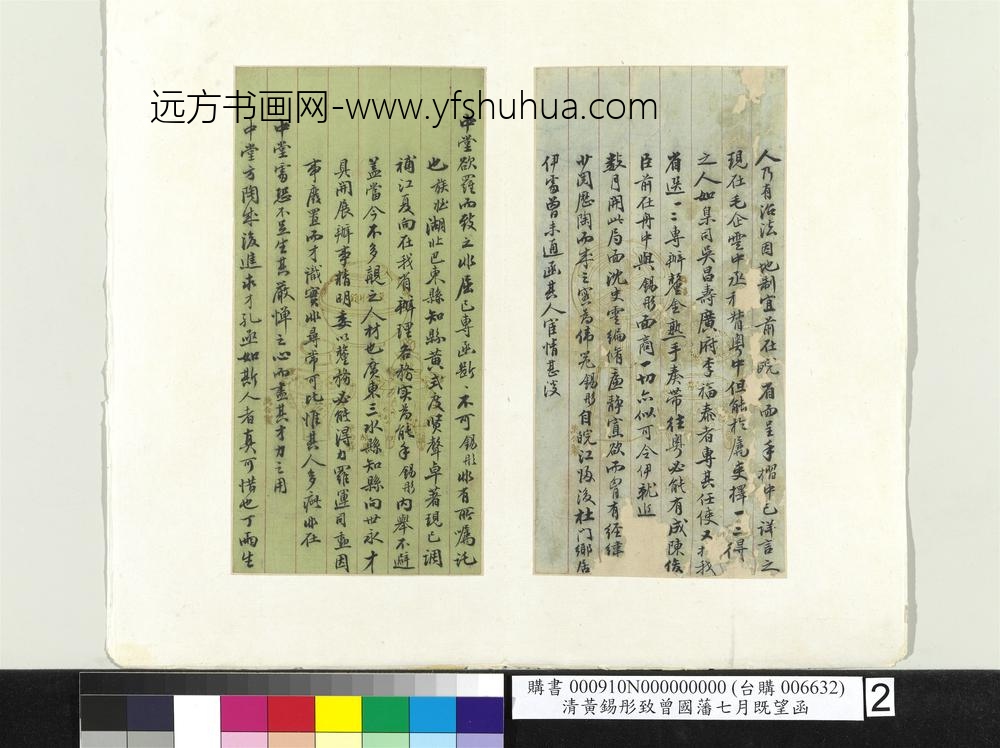 远方书画网-www.yfshuhua.com
人乃有治法因地制宜前在皖省面呈手摺中已詳言之
現任毛企雲中丞才猷粵中但能於屬吏擇一二得
之人如臬司吳昌壽廣府李福泰者專其任使又于我
省選一二專辦釐金熟手奏帶往粵必能有成陳俊
臣前在舟中與錫彤面商一切亦似可令伊就近
數月開此局面沈史雲編脩廉靜寡欲而胸有經緯
廿閏歷陶而李之實為偉兄錫彤自皖江歸後杜門鄉居
伊處曾未通函其人宦情甚淡
中堂欲羅而致之非屈己專函斷不可錫彤非有所囑託
也族姪湖北巴東縣知縣黃式度賢聲卓著現已調
補江夏向在我省辦理各務實為能手錫彤內舉不避
蓋當今不多覯之人材也廣東三水縣知縣向世永才
具開展辦事精明委以釐務必能得力羅運司亟因
事廢置而才識實非尋常可比惟其人多病非在
中堂處恐不足生其嚴憚之心而盡其才力之用
中堂方陶成後進求才孔亟如斯人者真可惜也丁雨生
購書 000910N000000000 (台購 006632)
清黃錫彤致曾國藩七月既望函
2